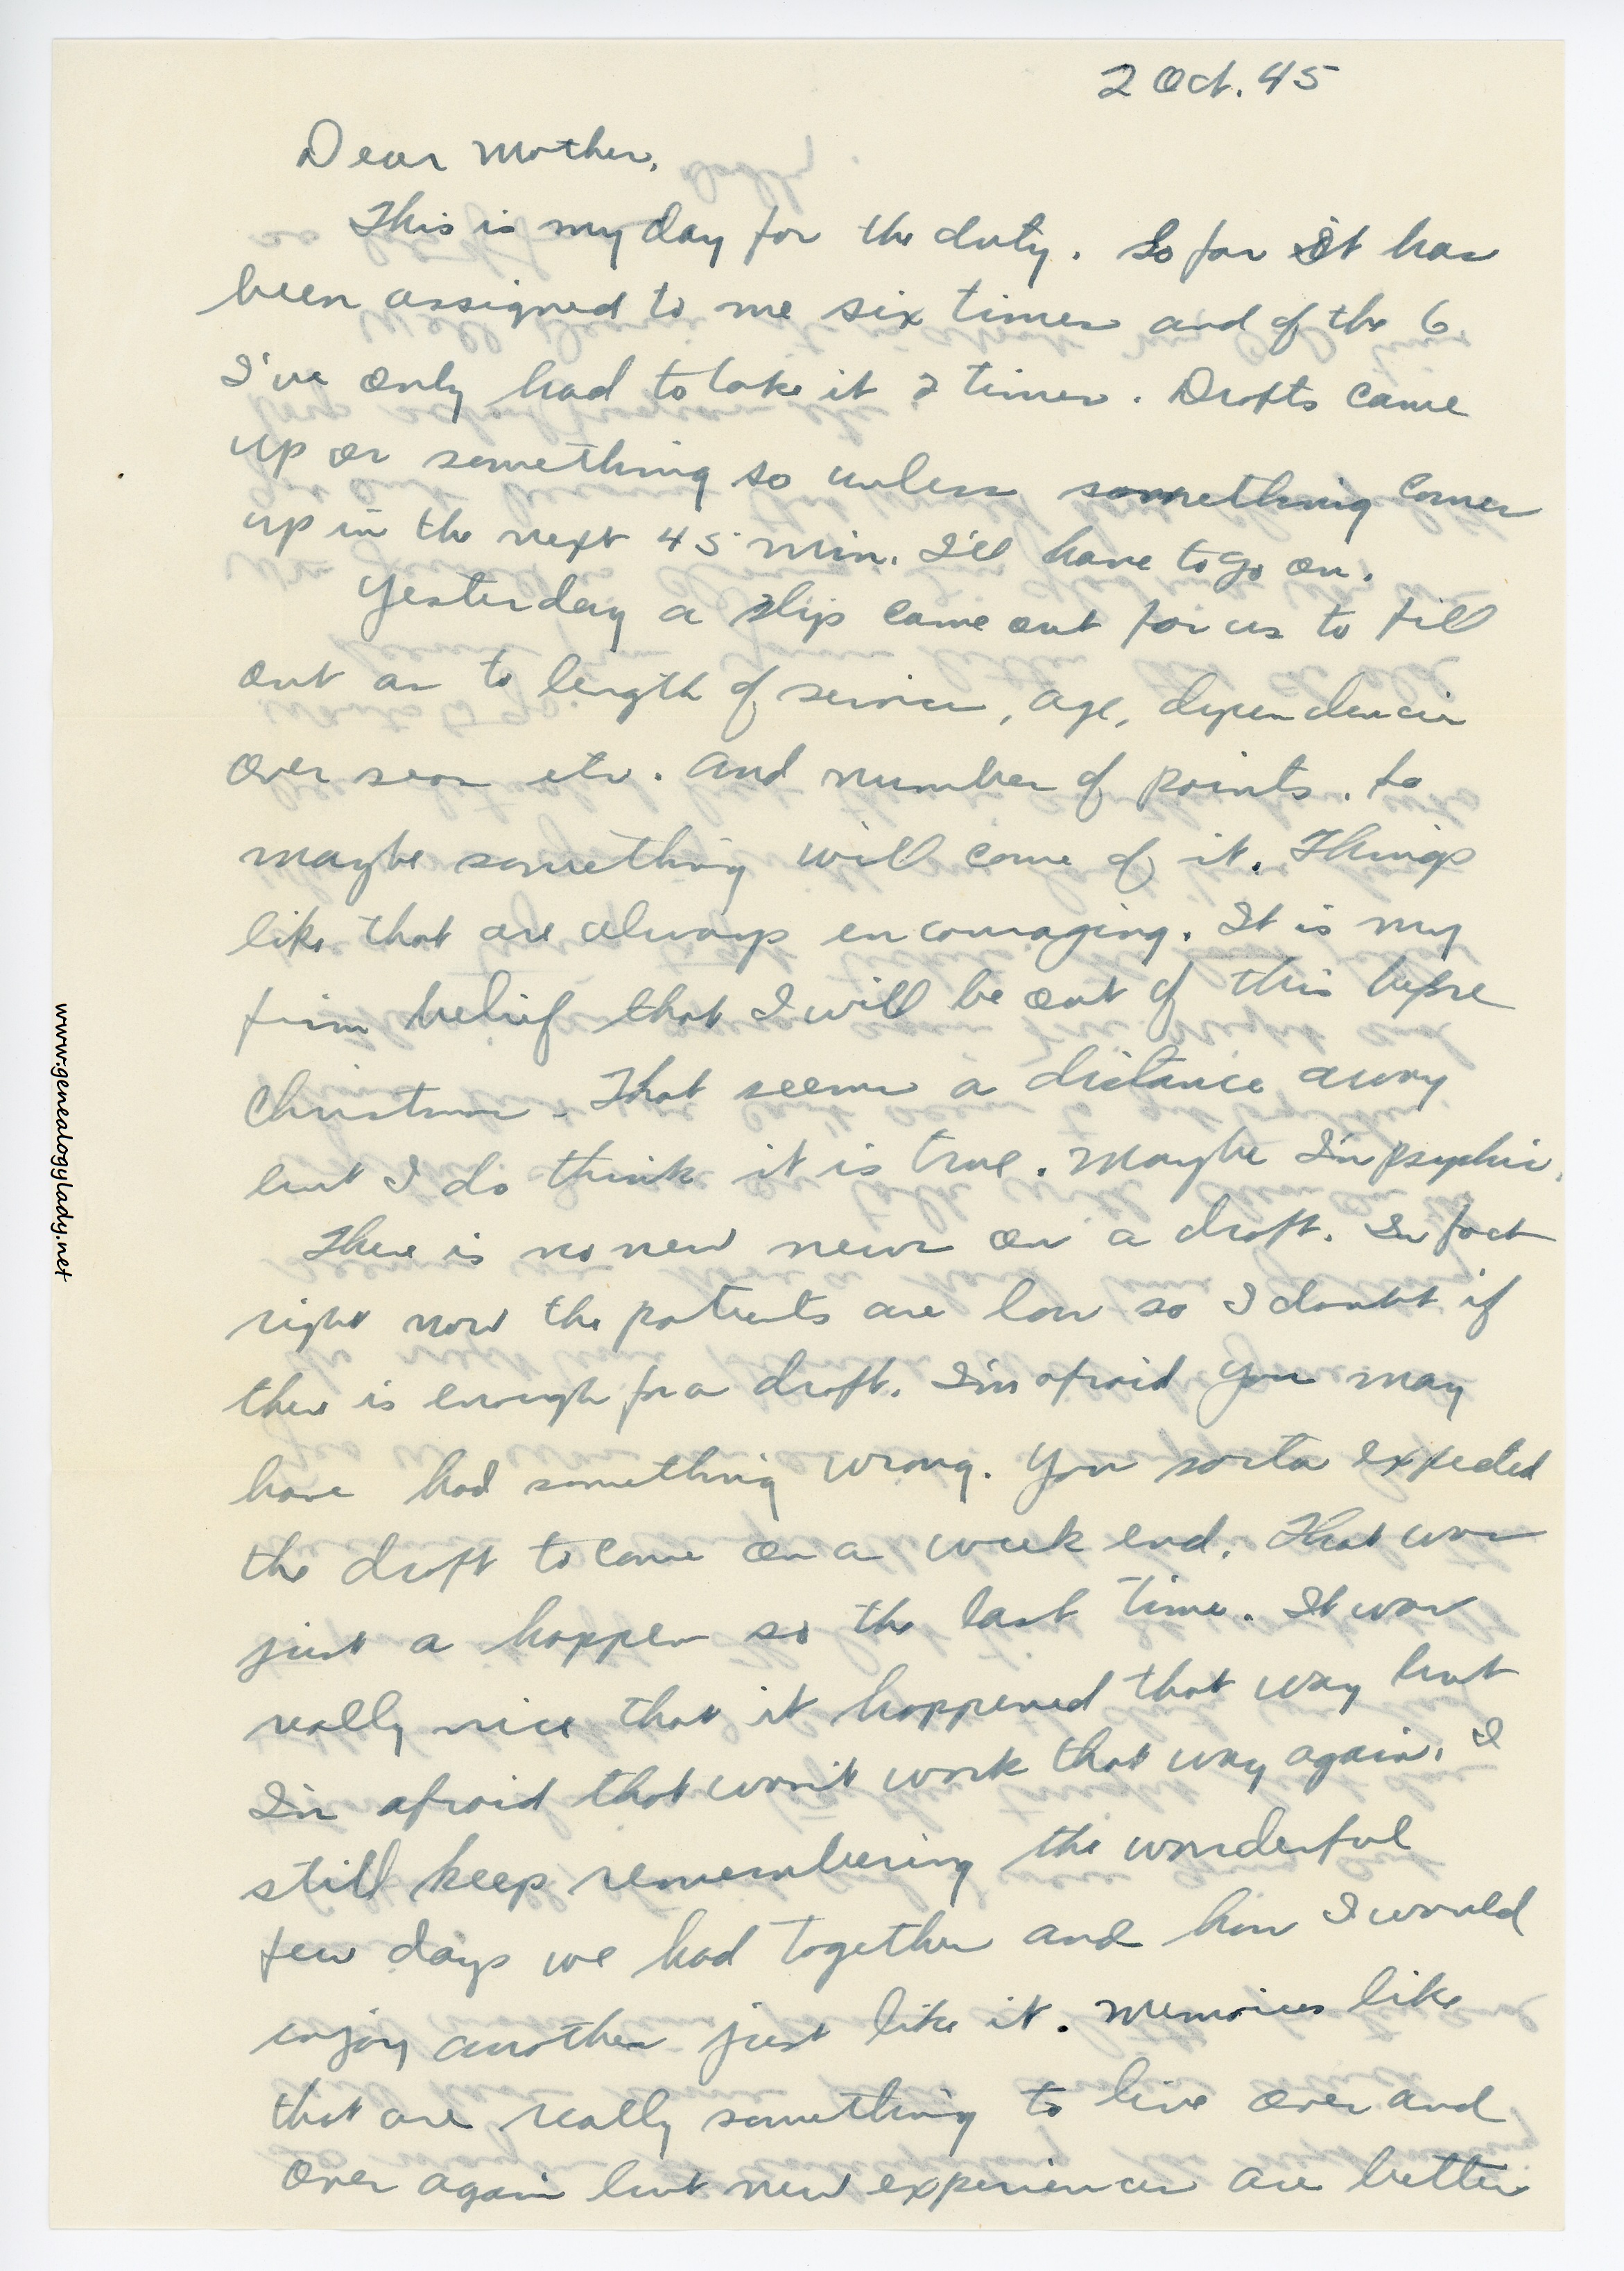 2 Oct. 45
Dear Mother,
This is my day for the duty. So far it has
been assigned to me six times and of the 6
I've only had to take it 2 times. Drafts came
up or something so unless something comes
up in the next 45 min. I'll have to go on.
Yesterday a slip came out for us to fill
out as to length of service, age, dependencies
over seas etc. and number of points. So
maybe something will come of it. Things
like that are always encouraging. It is my
firm belief that I will be out of this before
Christmas. That seems a distance away
but I do think it is true. Maybe I'm psychic.
There is no new news on a draft. In fact
right now the patients are low so I doubt if
there is enough for a draft. I'm afraid you may
have had something wrong. You sorta expected
the draft to come on a week end. That was
just a happen so the last time. It was
really nice that it happened that way but
I'm afraid that won't work that way again. I
still keep remembering the wonderful
few days we had together and how I would
enjoy another just like it. Memories like
that are really something to live over and
over again but new experiences are better
www.genealogylady.net